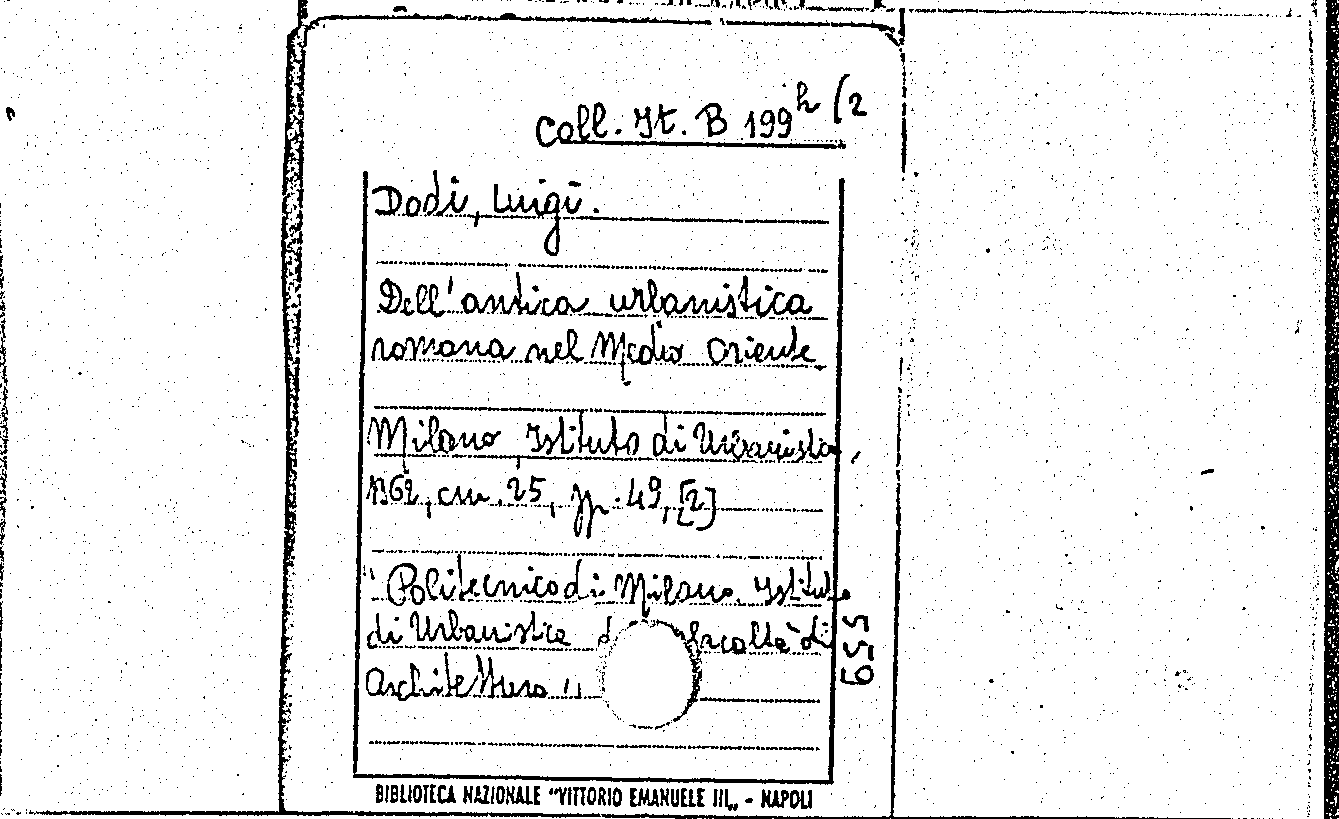 Coll. It. B 199 h (2
Dodi, Luigi.
Dell'antica urbanistica
romana nel Medio Oriente.
Milano, Istituto di Urbanistica,
1962, cm. 25, pp. 49, [2]
"Politecnico di Milano. Istituto
di Urbanistica Facoltà di
Architettura"
655
BIBLIOTECA NAZIONALE "VITTORIO EMANUELE III„ - NAPOLI